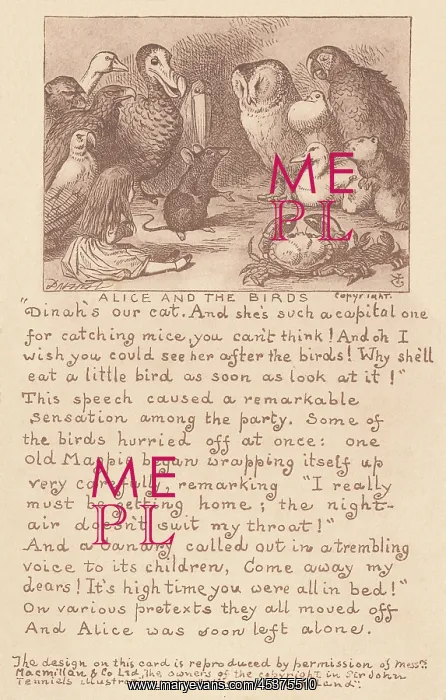 ALICE AND THE BIRDS
Copyright.
"Dinah's our cat. And she's such a capital one
for catching mice, you can't think! And oh I
wish you could see her after the birds! Why she'll
eat a little bird as soon as look at it!"
This speech caused a remarkable
sensation among the party. Some of
the birds hurried off at once: one
old Magpie began wrapping itself up
very carefully, remarking "I really
must be getting home; the night-
air doesn't suit my throat!"
And a Canary called out in a trembling
voice to its children, Come away my
dears! It's high time you were all in bed!"
On various pretexts they all moved off
And Alice was soon left alone.
The design on this card is reproduced by permission of Messrs
Macmillan & Co Ltd, the owners of the copyright in Sir John
Tenniel's
ME
PL
ME
PL
www.maryevans.com/45375510